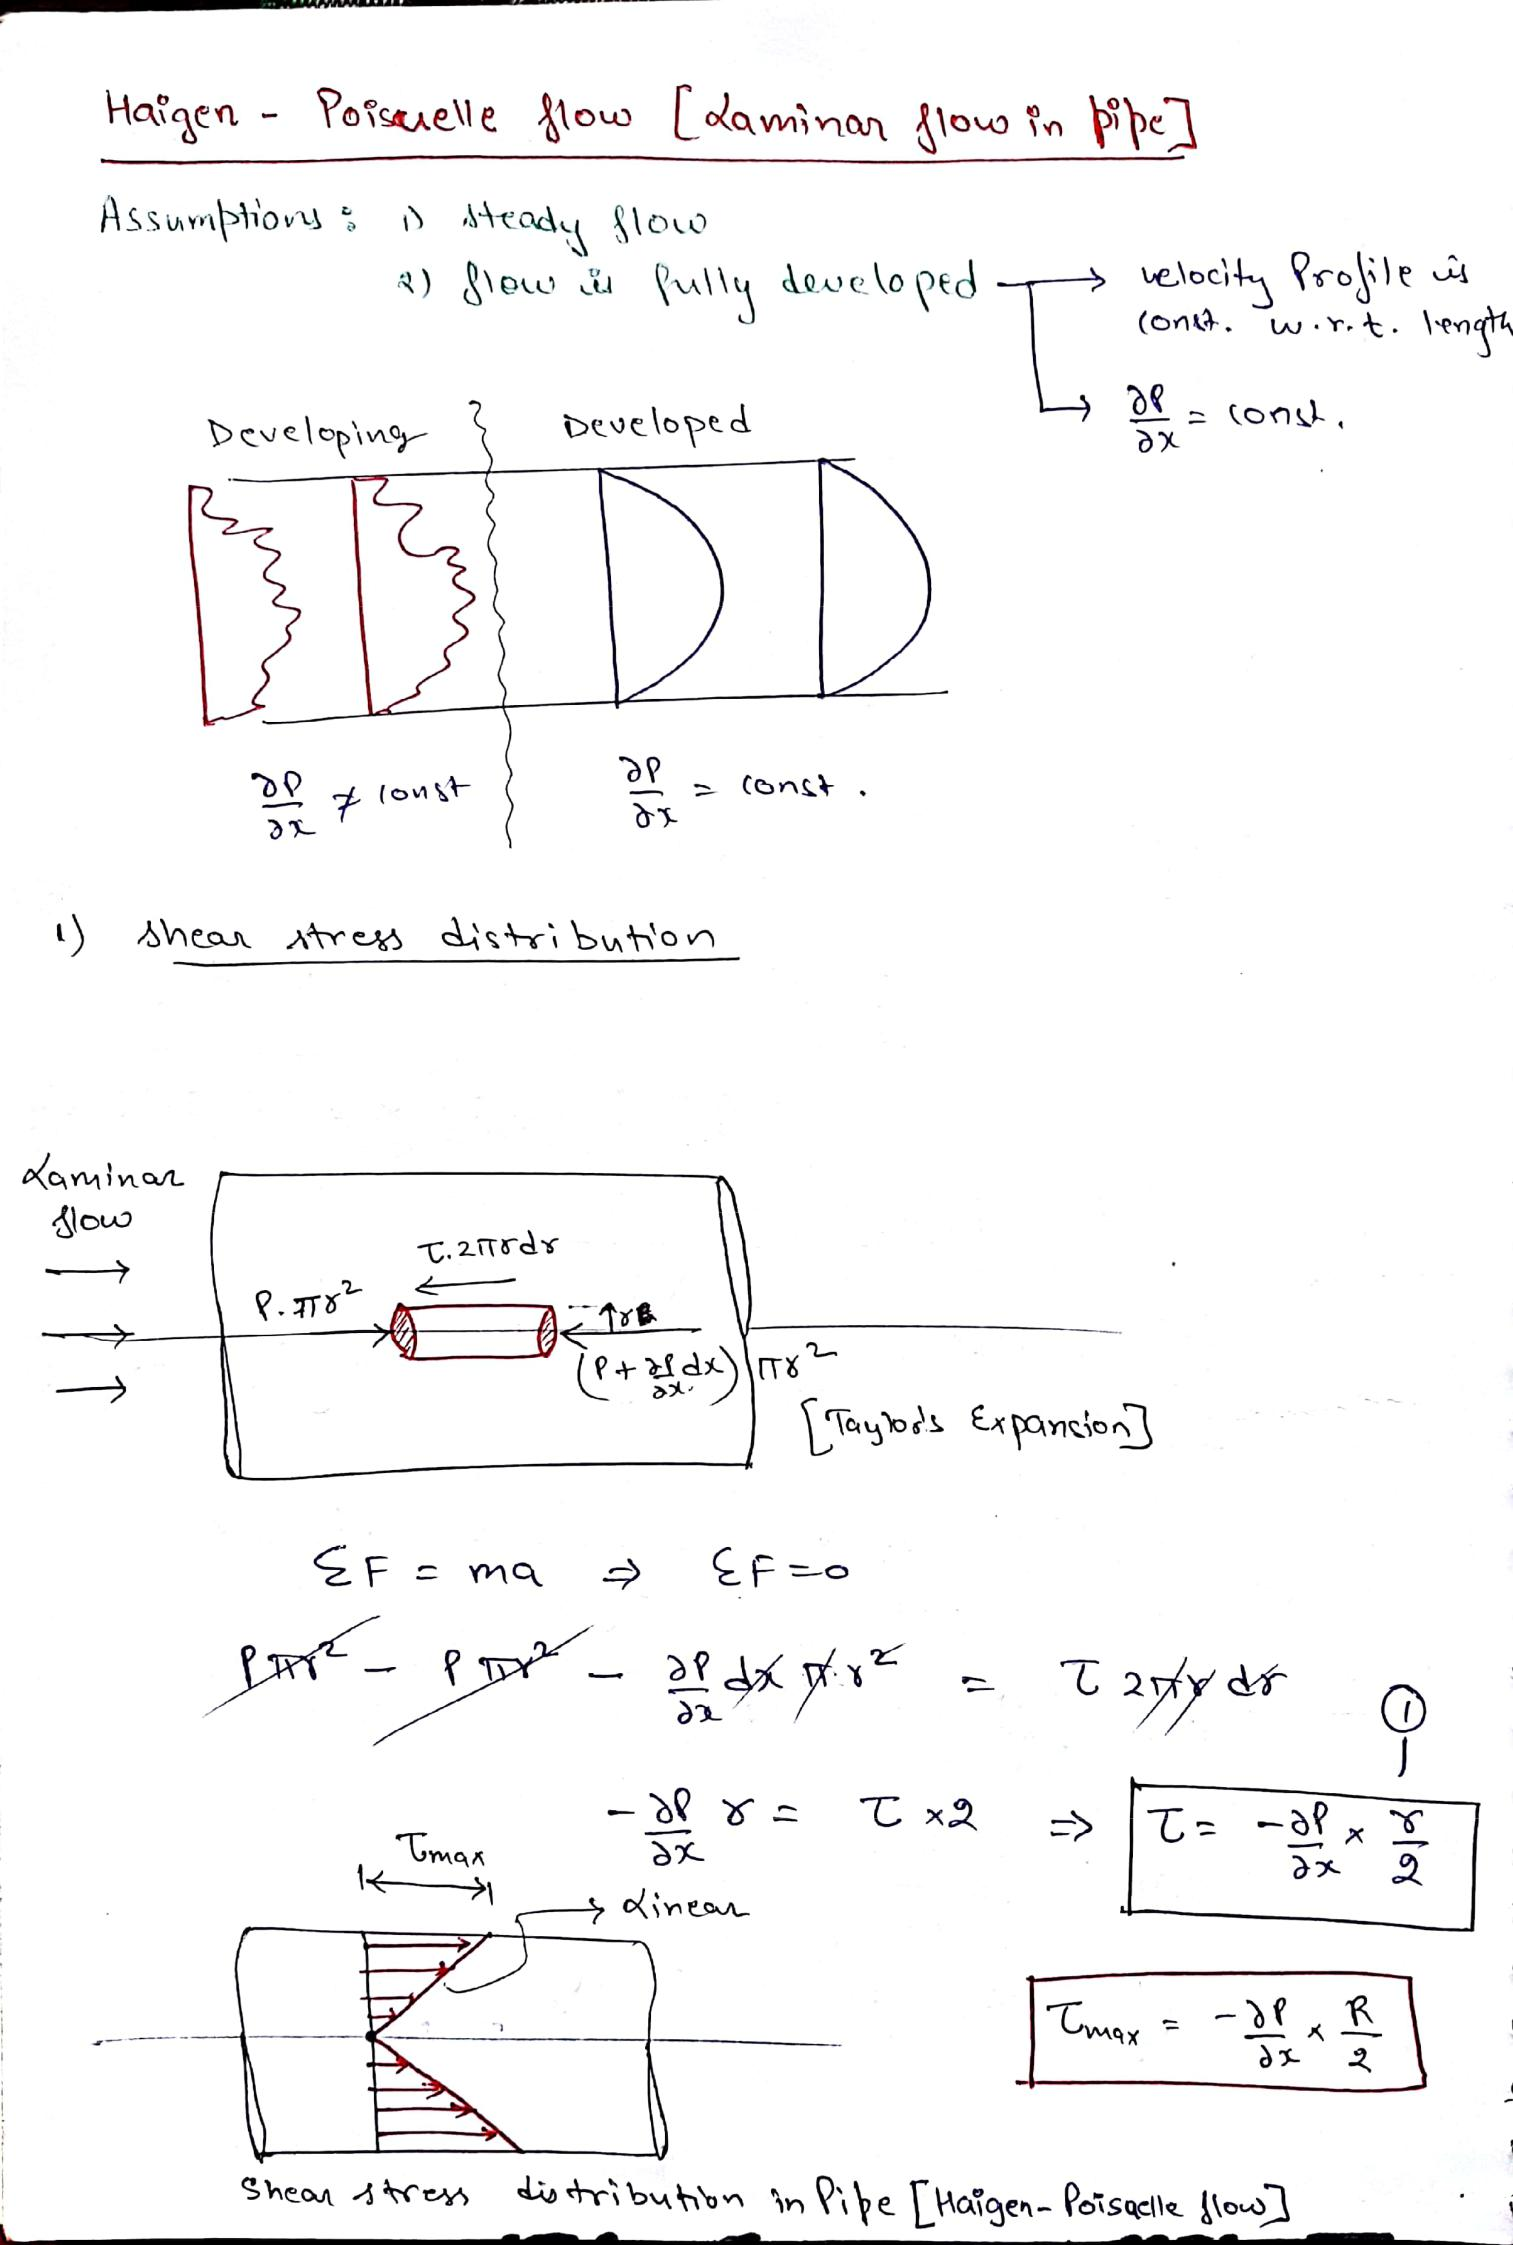 Haigen - Poisuelle flow [Laminar flow in pipe]
Assumptions : 1) steady flow
2) flow is fully developed → velocity Profile is
const. w.r.t. length
↳ ∂P/∂x = const.
Developing Developed
∂P/∂x ≠ const ∂P/∂x = const.
1) shear stress distribution
Laminar
flow
τ.2πrdr
P.πr²
↑r
(P+∂P/∂x.dx)πr²
[Taylor's Expansion]
ΣF = ma ⇒ ΣF=0
Pπr² - Pπr² - ∂P/∂x dx π.r² = τ2πrdr
①
-∂P/∂x r = τ×2 ⇒ τ = -∂P/∂x × r/2
τmax
Linear
τmax = -∂P/∂x × R/2
Shear stress distribution in Pipe [Haigen-Poisaelle flow]